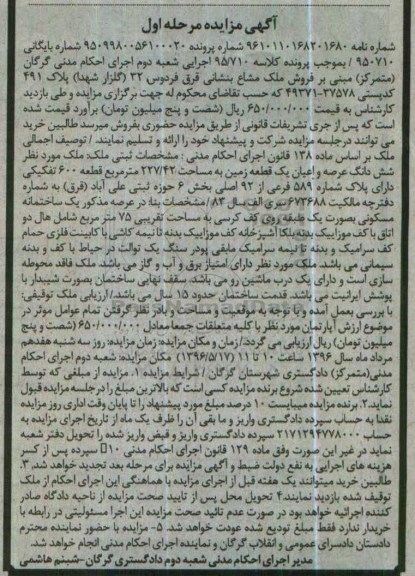 آگهی مزایده مرحله اول
شماره نامه ۹۶۱۰۱۱۰۱۶۸۲۰۱۶۸۰ شماره پرونده ۹۵۰۹۹۸۰۰۵۶۱۰۰۰۲۰ شماره بایگانی
۹۵۰۷۱۰ / بموجب پرونده کلاسه ۹۵/۷۱۰ اجرایی شعبه دوم اجرای احکام مدنی گرگان
(متمرکز) مبنی بر فروش ملک مشاع بنشانی قرق فردوس ۳۲ (گلزار شهدا) پلاک ۴۹۱
کدپستی ۳۷۵۷۸-۴۹۳۷۱ که حسب تقاضای محکوم له جهت برگزاری مزایده و طی بازدید
کارشناس به قیمت ۶۵۰/۰۰۰/۰۰۰ ریال (شصت و پنج میلیون تومان) برآورد قیمت شده
است که پس از جری تشریفات قانونی از طریق مزایده حضوری بفروش میرسد طالبین خرید
می توانند در جلسه مزایده شرکت و پیشنهاد خود را ارائه و تسلیم نمایند. / توصیف اجمالی
ملک بر اساس ماده ۱۳۸ قانون اجرای احکام مدنی : مشخصات ثبتی ملک: ملک مورد نظر
شش دانگ عرصه و اعیان یک قطعه زمین به مساحت ۲۲۷/۴۲ مترمربع قطعه ۶۰۰ تفکیکی
دارای پلاک شماره ۵۸۹ فرعی از ۹۲ اصلی بخش ۶ حوزه ثبتی علی آباد (قرق) به شماره
دفترچه مالکیت ۶۷۳۶۸۸ سری الف سال ۸۳ / مشخصات بنا: در عرصه مذکور یک ساختمانه
مسکونی بصورت یک طبقه روی کف کرسی به مساحت تقریبی ۷۵ متر مربع شامل هال دو
اتاق با کف موزاییک بدنه بلکا آشپزخانه کف موزاییک بدنه تا نیمه کاشی با کابینت فلزی حمام
کف سرامیک و بدنه تا نیمه سرامیک مابقی پودر سنگ یک توالت در حیاط با کف و بدنه
سیمانی می باشد. ملک مورد نظر دارای امتیاز برق و آب و گاز می باشد. ملک فاقد محوطه
سازی است و دارای یک درب ماشین رو می باشد. سقف نهایی ساختمان بصورت شیبدار با
پوشش ایرانیت می باشد. قدمت ساختمان حدود ۱۵ سال می باشد/ ارزیابی ملک توقیفی:
با بررسی بعمل آمده و با توجه به موقعیت و مساحت و بادر نظر گرفتن تمام عوامل موثر در
موضوع ارزش آپارتمان مورد نظر با کلیه متعلقات جمعا معادل ۶۵۰/۰۰۰/۰۰۰ (شصت و پنج
میلیون تومان) ریال ارزیابی می گردد. / زمان و مکان مزایده: زمان مزایده: روز سه شنبه هفدهم
مرداد ماه سال ۱۳۹۶ ساعت ۱۰ تا ۱۱ (۱۳۹۶/۵/۱۷) مکان مزایده: شعبه دوم اجرای احکام
مدنی(متمرکز) دادگستری شهرستان گرگان / شرایط مزایده ۱. مزایده از مبلغی که توسط
کارشناس تعیین شده شروع برنده مزایده کسی است که بالاترین مبلغ را در جلسه مزایده قبول
نماید.۲. برنده مزایده میبایست ۱۰ درصد مبلغ مورد پیشنهاد را تا پایان وقت اداری روز مزایده
نقدا به حساب سپرده دادگستری واریز و ما بقی آن را ظرف یک ماه از تاریخ اجرای مزایده به
حساب ۲۱۷۱۲۹۴۷۷۸۰۰۰ سپرده دادگستری واریز و قبض واریز شده را تحویل دفتر شعبه
نماید در غیر این صورت وفق ماده ۱۲۹ قانون اجرای احکام مدنی ۱۰ سپرده پس از کسر
هزینه های اجرایی به نفع دولت ضبط و آگهی مزایده برای مرحله بعد تجدید خواهد شد. ۳.
طالبین خرید میتوانند یک هفته قبل از اجرای مزایده با هماهنگی این اجرای احکام از ملک
توقیف شده بازدید نمایند.۴ تحویل محل پس از تایید صحت مزایده از ناحیه دادگاه صادر
کننده اجرائیه خواهد بود در صورت عدم تائید صحت مزایده این اجرا مسئولیتی در رابطه با
خریدار ندارد فقط مبلغ تودیع شده عودت خواهد شد. ۵- مزایده با حضور نماینده محترم
دادستان دادسرای عمومی و انقلاب گرگان و نماینده اجرای احکام مدنی انجام خواهد شد.
مدیر اجرای احکام مدنی شعبه دوم دادگستری گرگان-شبنم هاشمی